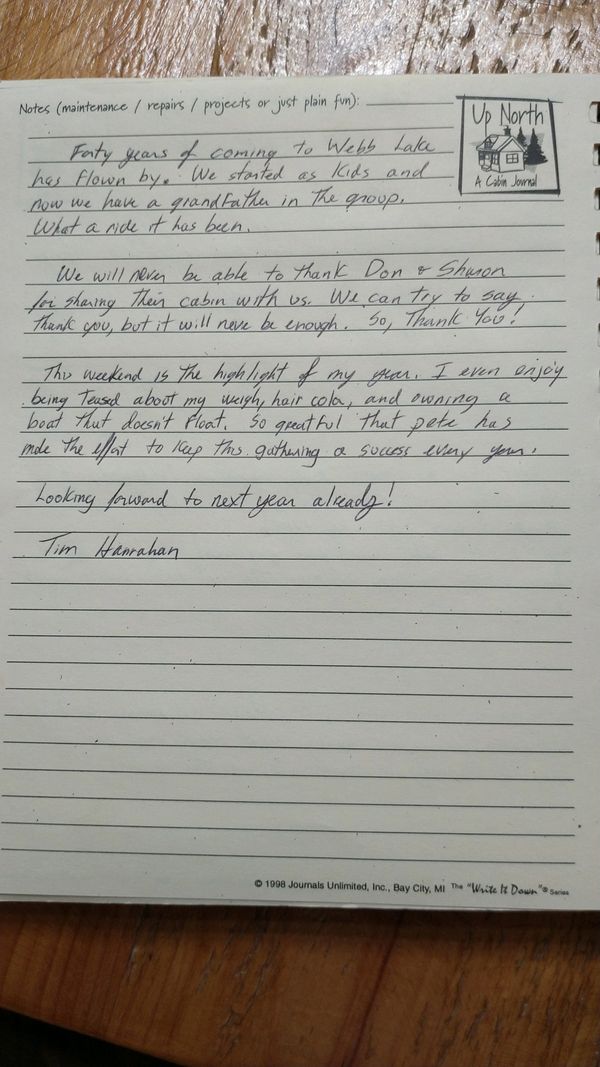 Notes (maintenance / repairs / projects or just plain fun):
Up North
A Cabin Journal
Forty years of coming to Webb Lake
has flown by. We started as Kids and
now we have a grandfather in the group.
What a ride it has been.
We will never be able to thank Don & Sharon
for sharing their cabin with us. We can try to say
thank you, but it will neve be enough. So, Thank You!
This weekend is the highlight of my year. I even enjoy
being teased about my weigh, hair color, and owning a
boat that doesn't float. So greatful that pete has
made the effort to keep this gathering a success every year.
Looking forward to next year already!
Tim Hanrahan
© 1998 Journals Unlimited, Inc., Bay City, MI The "Write It Down"® Series